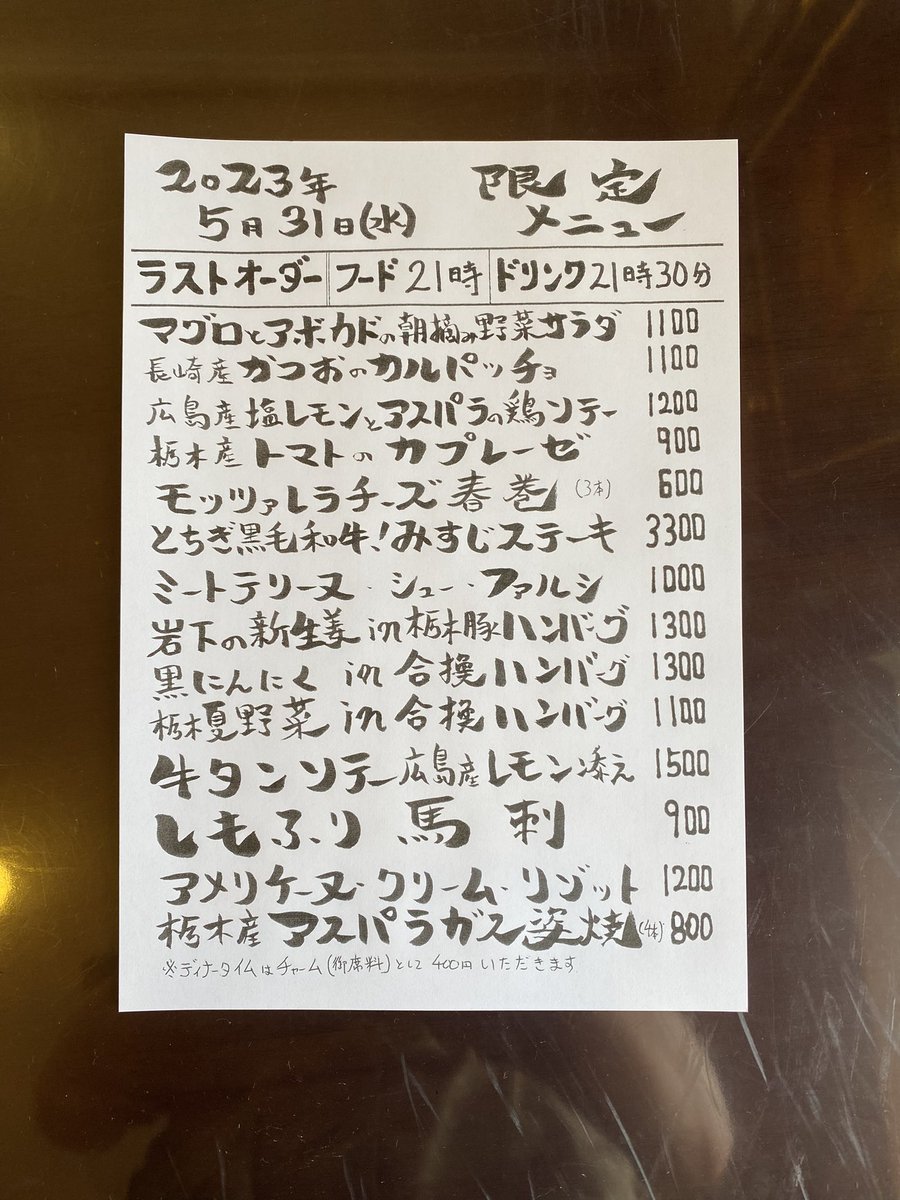 2023年 限定
5月31日(水) メニュー
ラストオーダー フード21時 ドリンク21時30分
マグロとアボカドの朝摘み野菜サラダ 1100
長崎産かつおのカルパッチョ 1100
広島産塩レモンとアスパラの鶏ソテー 1200
栃木産トマトのカプレーゼ 900
モッツァレラチーズ春巻(3本) 600
とちぎ黒毛和牛!みすじステーキ 3300
ミートテリーヌ・シュー・ファルシ 1000
岩下の新生姜in栃木豚ハンバーグ 1300
黒にんにくin合挽ハンバーグ 1300
栃木夏野菜in合挽ハンバーグ 1100
牛タンソテー広島産レモン添え 1500
しもふり馬刺 900
アメリケーヌ・クリーム・リゾット 1200
栃木産アスパラガス姿焼(4本) 800
※ディナータイムはチャーム(御席料)として400円いただきます